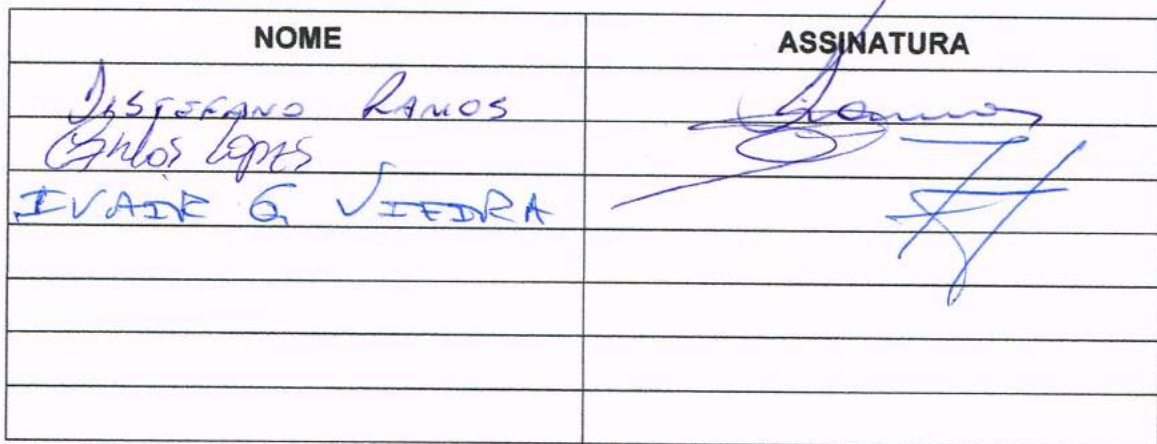 NOME ASSINATURA
DISTEFANO RAMOS Ramos
Carlos Lopes
IVAIR G VIEIRA